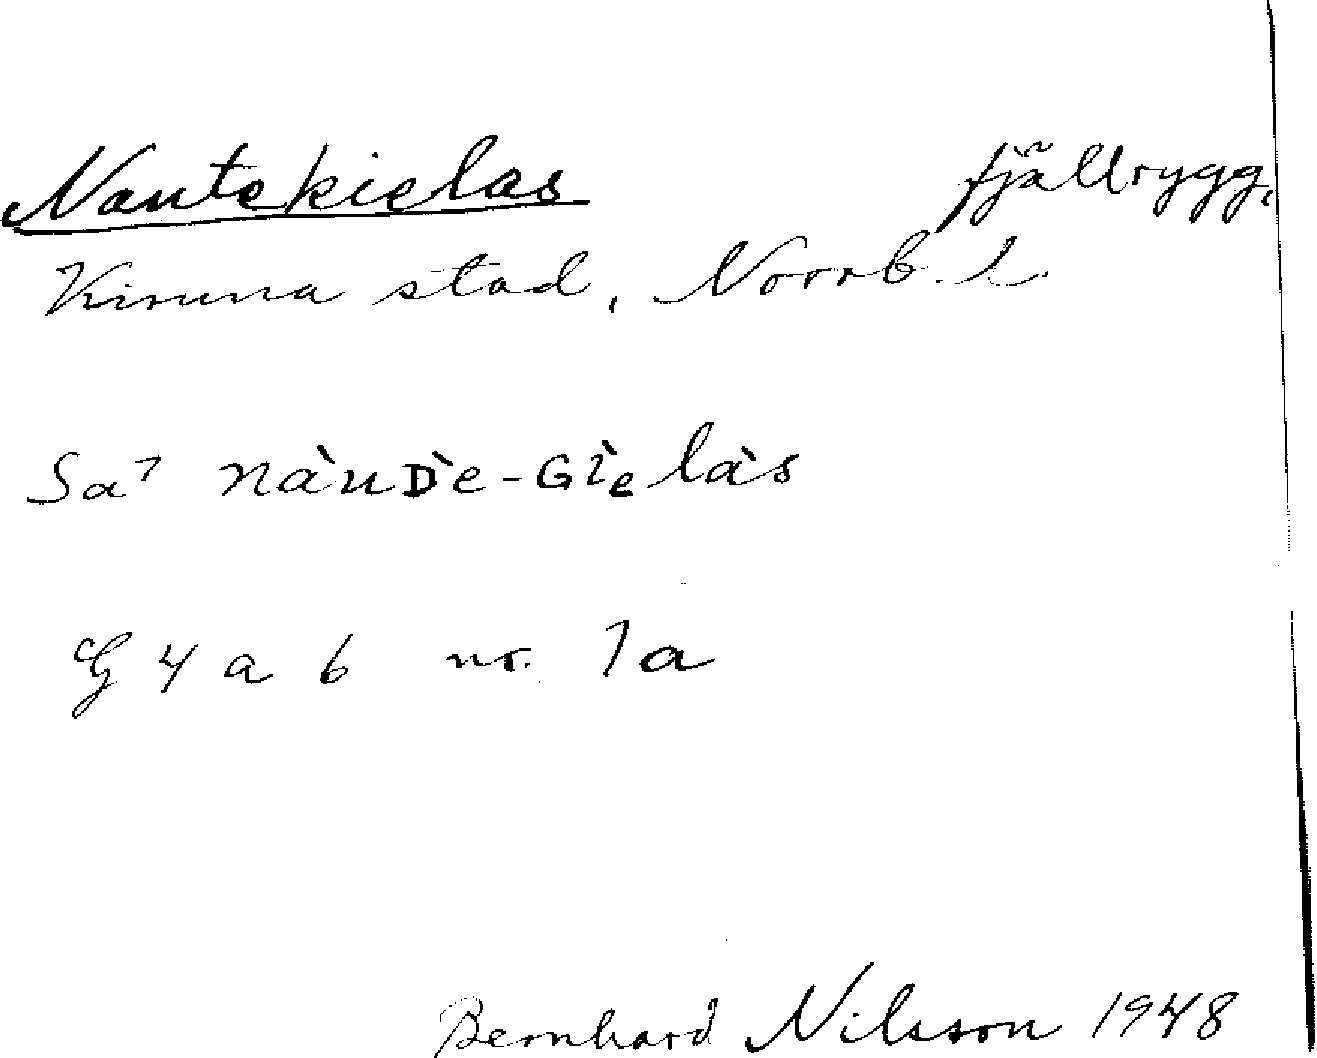 Nautekielas fjällrygg,
Kiruna stad, Norrb. l.
Sa⁷ nàuᴅ̀e-ɢìelàs
G 4 a b nr. 1a
Bernhard Nilsson 1948